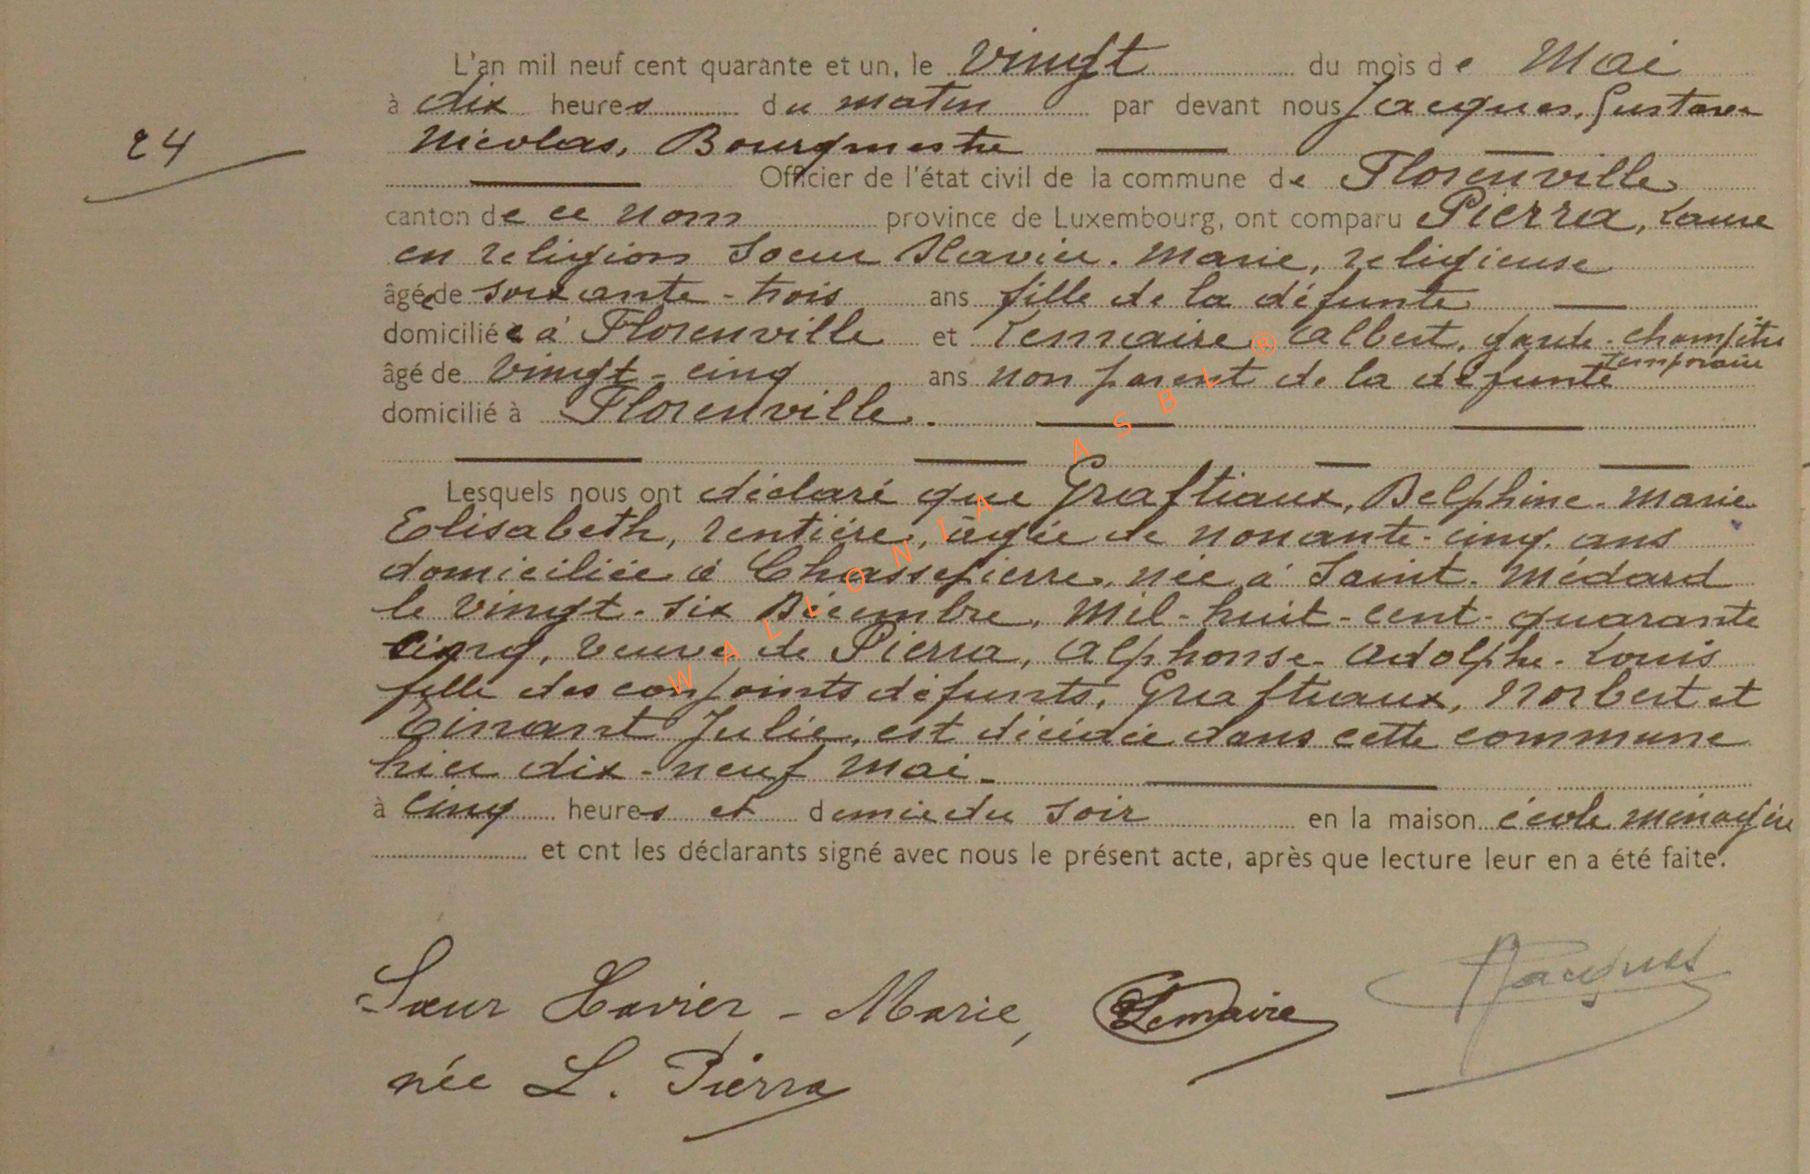 L'an mil neuf cent quarante et un, le vingt du mois de Mai
à dix heures du matin par devant nous Jacques, Gustave
24
Nicolas, Bourgmestre
Officier de l'état civil de la commune de Florenville
canton de ce nom province de Luxembourg, ont comparu Pierra, Laure
en religion Soeur Xavier-Marie, religieuse
âgée de soixante-trois ans fille de la défunte
domiciliée à Florenville et Lemaire Albert, garde-champêtre
temporaire
âgé de vingt-cinq ans non parent de la défunte
domicilié à Florenville.
Lesquels nous ont déclaré que Graftiaux, Delphine-Marie
Elisabeth, rentière, âgée de nonante-cinq ans
domiciliée à Chassepierre, née à Saint-Médard
le vingt-six Décembre, mil-huit-cent-quarante
cinq, veuve de Pierra, Alphonse-Adolphe-Louis
fille des conjoints défunts, Graftiaux, Norbert et
Tinant Julie, est décédée dans cette commune
hier dix-neuf Mai
à cinq heures et demie du soir en la maison école ménagère
et ont les déclarants signé avec nous le présent acte, après que lecture leur en a été faite.
WALLONIA ASBL ®
Sœur Xavier-Marie, Lemaire Jacques
née L. Pierra